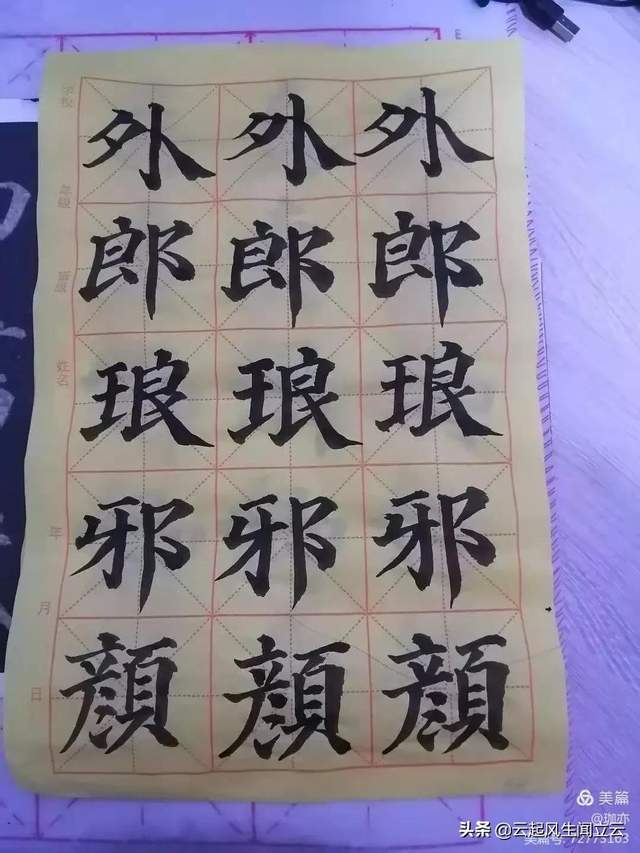 学校
年级
班级
姓名
年
月
日
外 外 外
郎 郎 郎
琅 琅 琅
邪 邪 邪
顏 顏 顏
美篇
@珈亦
头条 @云起风生闻立云
美篇号: 72773163